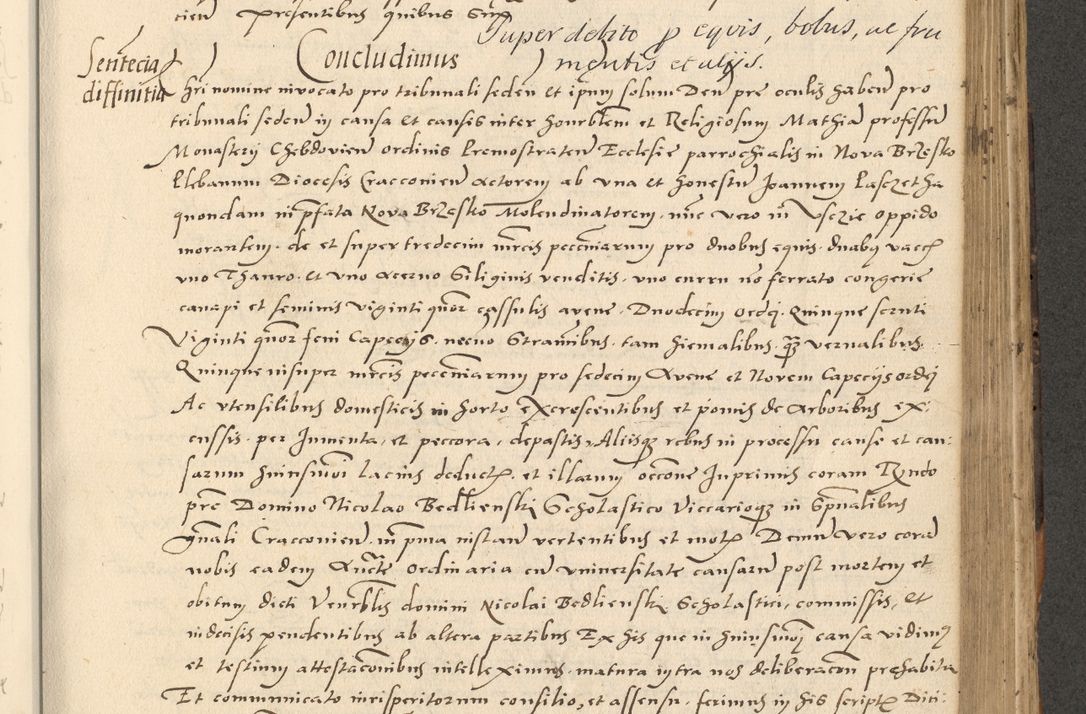 cien presentibus quibus sup
Super debito p equis, bobus, ac fru
Sentecia
diffinitia
Concludimus
mentis et aliis.
Xri nomine invocato pro tribunali seden et ipsum solum Deu pre oculis haben pro
tribunali seden in causa et causis inter honrblem et Religiosum Mathia professu
Monasterij Chebdovien ordinis Premostraten Ecclesie parrochialis in Nova Brzesko
Plebanum Diocesis Cracconien actorem ab una et honestu Joannem Pasczetha
quondam in pfata Nova Brzesko Molendinatorem, nuc vero in Vsczie oppido
morantem, de et super tredecim mrcis pecciarum pro duobus equis, duabq vaccis
vno Thauro, et vno acervo Siliginis venditis, vno curru no ferrato congerie
canapi et seminis viginti quor cassulis avene, Duodecim ordej, Quinque scruti
Viginti quor feni Capecijs, necno Stramibus, tam hiemalibus, quam vernalibus,
Quinque insuper mrcis pecciarum pro sedecim Avene et Novem Capecijs ordej
Ac vtensilibus domesticis in horto excrescentibus et pomis de arboribus ex-
cussis, per Jumenta, et peccora, depastis, Aliisque rebus in processu cause et cau-
sarum huiusmoi lacius deductis, et illarum occone Inprimis coram Rndo
pre Domino Nicolao Bedlienski Scholastico Viccarioque in Spualibus
gnali Cracconien, in pma instan vertentibus et motis Demu vero cora
nobis eadem Aucte ordinaria cu vniversitate causaru post mortem et
obitum dicti Venrblis domini Nicolai Bedlienski Scholastici, commissis, et
indecisis pendentibus ab altera partibus Ex his que in huiusmoi causa vidimus
et testium attestaconibus intelleximus, matura intra nos deliberacon prehabita
Et communicato iurisperitorum consilio, et assensu, ferimus in his scriptis Diti-